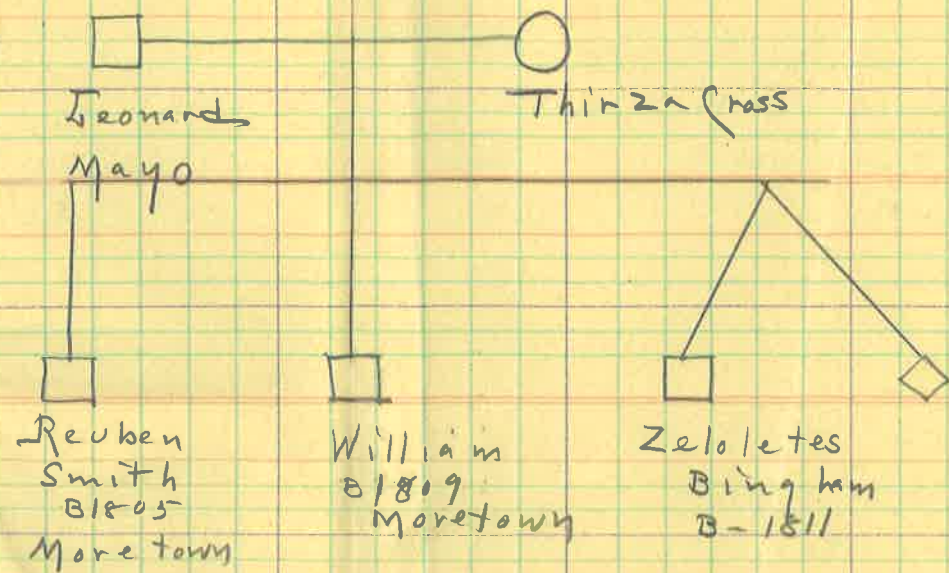 Leonard
Mayo
Thirza Cross
Reuben
Smith
B1805
Moretown
William
B1809
Moretown
Zeloletes
Bingham
B-1811